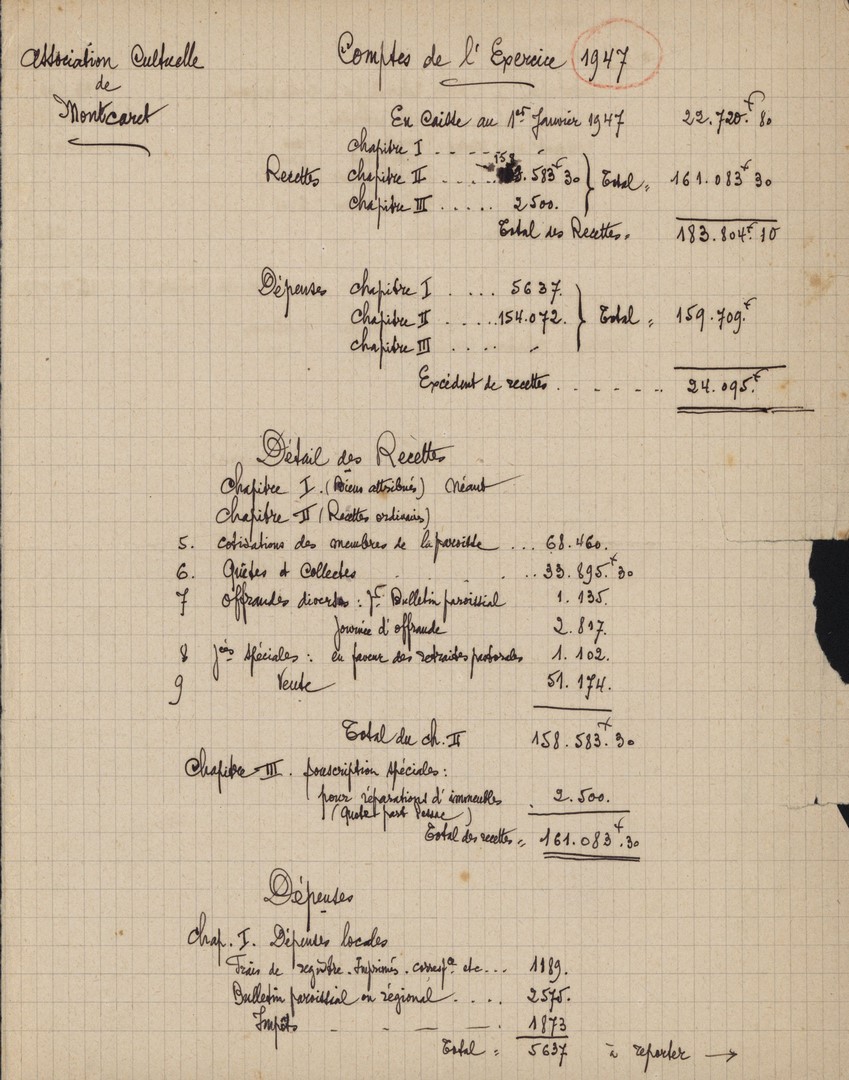 Association Cultuelle
de
Montcaret
Comptes de l'Exercice 1947
En Caisse au 1er Janvier 1947 22.720.f 80
Chapitre I - - - -
Recettes chapitre II ..... 158.583f 30 } Total = 161.083f 30
chapitre III ..... 2500.
Total des Recettes = 183.804f 10
Dépenses chapitre I .... 5637.
chapitre II .....154.072. } Total = 159.709f
chapitre III ....
Excédent de recettes ..... 24.095.f
Détail des Recettes
Chapitre I. (Biens attribués) Néant
Chapitre II (Recettes ordinaires)
5. cotisations des membres de la paroisse ... 68.460.
6. Quêtes et Collectes ... 33.895.f 30
7 offrandes diverses : Bulletin paroissial 1.135.
Journée d'offrande 2.817.
8 spéciales : en faveur des retraites pastorales 1.102.
9 Vente 51.174.
Total du ch. II 158.583f.30
Chapitre III. souscription spéciales :
pour réparations d'immeubles . 2.500.
(Quote part )
Total des recettes = 161.083f.30
Dépenses
Chap. I. Dépenses locales
Frais de registre. Imprimés. etc... 1189.
Bulletin paroissial ou régional .... 2575.
Impôts - - - 1873
Total = 5637 à reporter →